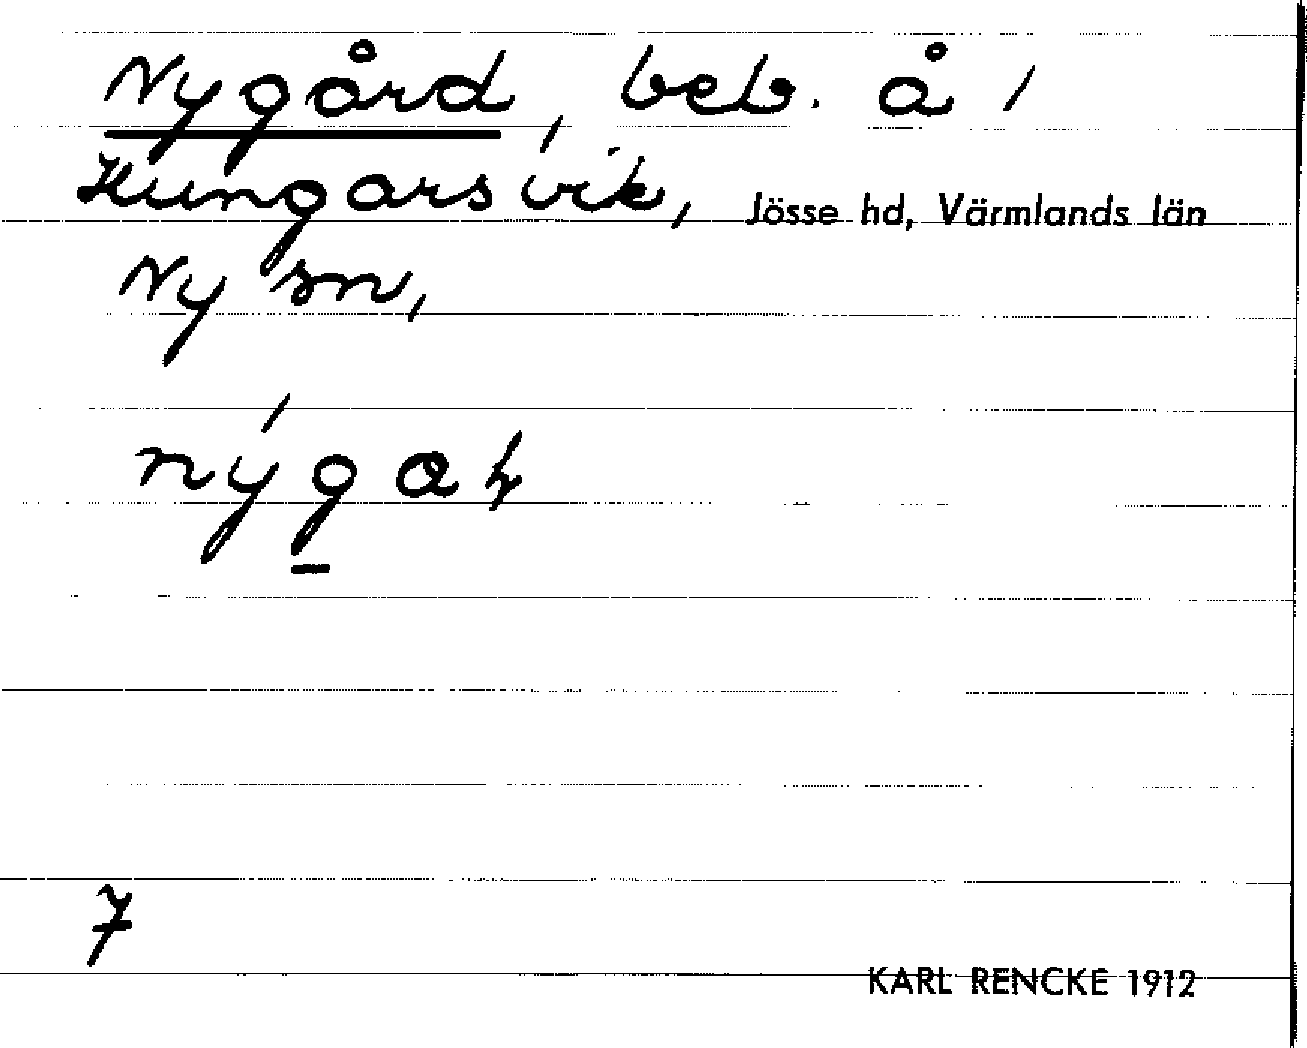 Nygård, beb. å 1
Kungarsvik, Jösse hd, Värmlands län
Ny sn,
nýga
7
KARL RENCKE 1912